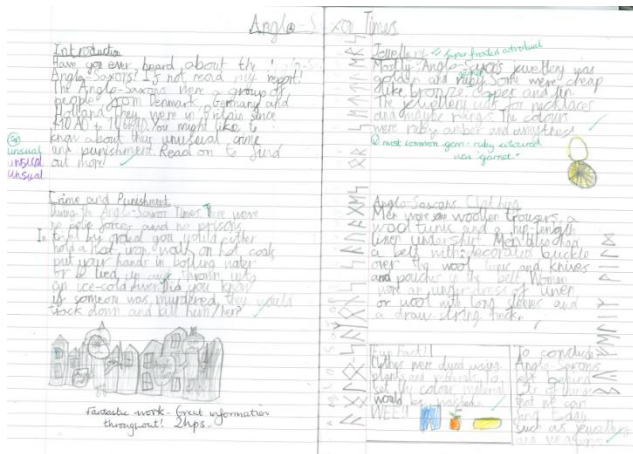 Anglo-Saxon Times
Introduction
Have you ever heard about the
Anglo-Saxons? If not read my report!
The Anglo-Saxons were a group of
people from Denmark, Germany and
Holland. They were in Britain since
to You might like to
know about this unusual crime
and punishment. Read on to find
out more!
Sp
unusual
unusual
unusual
Crime and Punishment
During the Anglo-Saxon Times there were
no police forces and no prisons.
In you would either
hold a hot iron, walk on hot coals
put your hands in boiling water
or be tied up and thrown into
an ice-cold river. Did you know
if someone was murdered, they would
track down and kill him/her?
Fantastic work - Great information
throughout! 2hps.
Jewellery
super fronted adverbial
Mostly, Anglo-Saxons jewellery was
golden and ruby. Some were cheap
like bronze, copper and tin.
The jewellery was for necklaces
and maybe rings. The colours
were ruby, amber and amythest
most common gem - ruby coloured
was "garnet".
Anglo-Saxons Clothing
Men wore woollen trousers, a
wool tunic and a hip-length
linen undershirt. Men also had
a belt with decorated buckle
over the wool tunic and knives
and pouches in the belt. Women
wore an under-dress of linen
or wool with long sleeves and
a draw-string neck.
Fun fact!
Clothes were dyed using
plants and
set the colour material
would be washed
WEE!!
To conclude
Anglo Saxons
left behind
lots of
that we can
find today
such as jewellery
and weapons